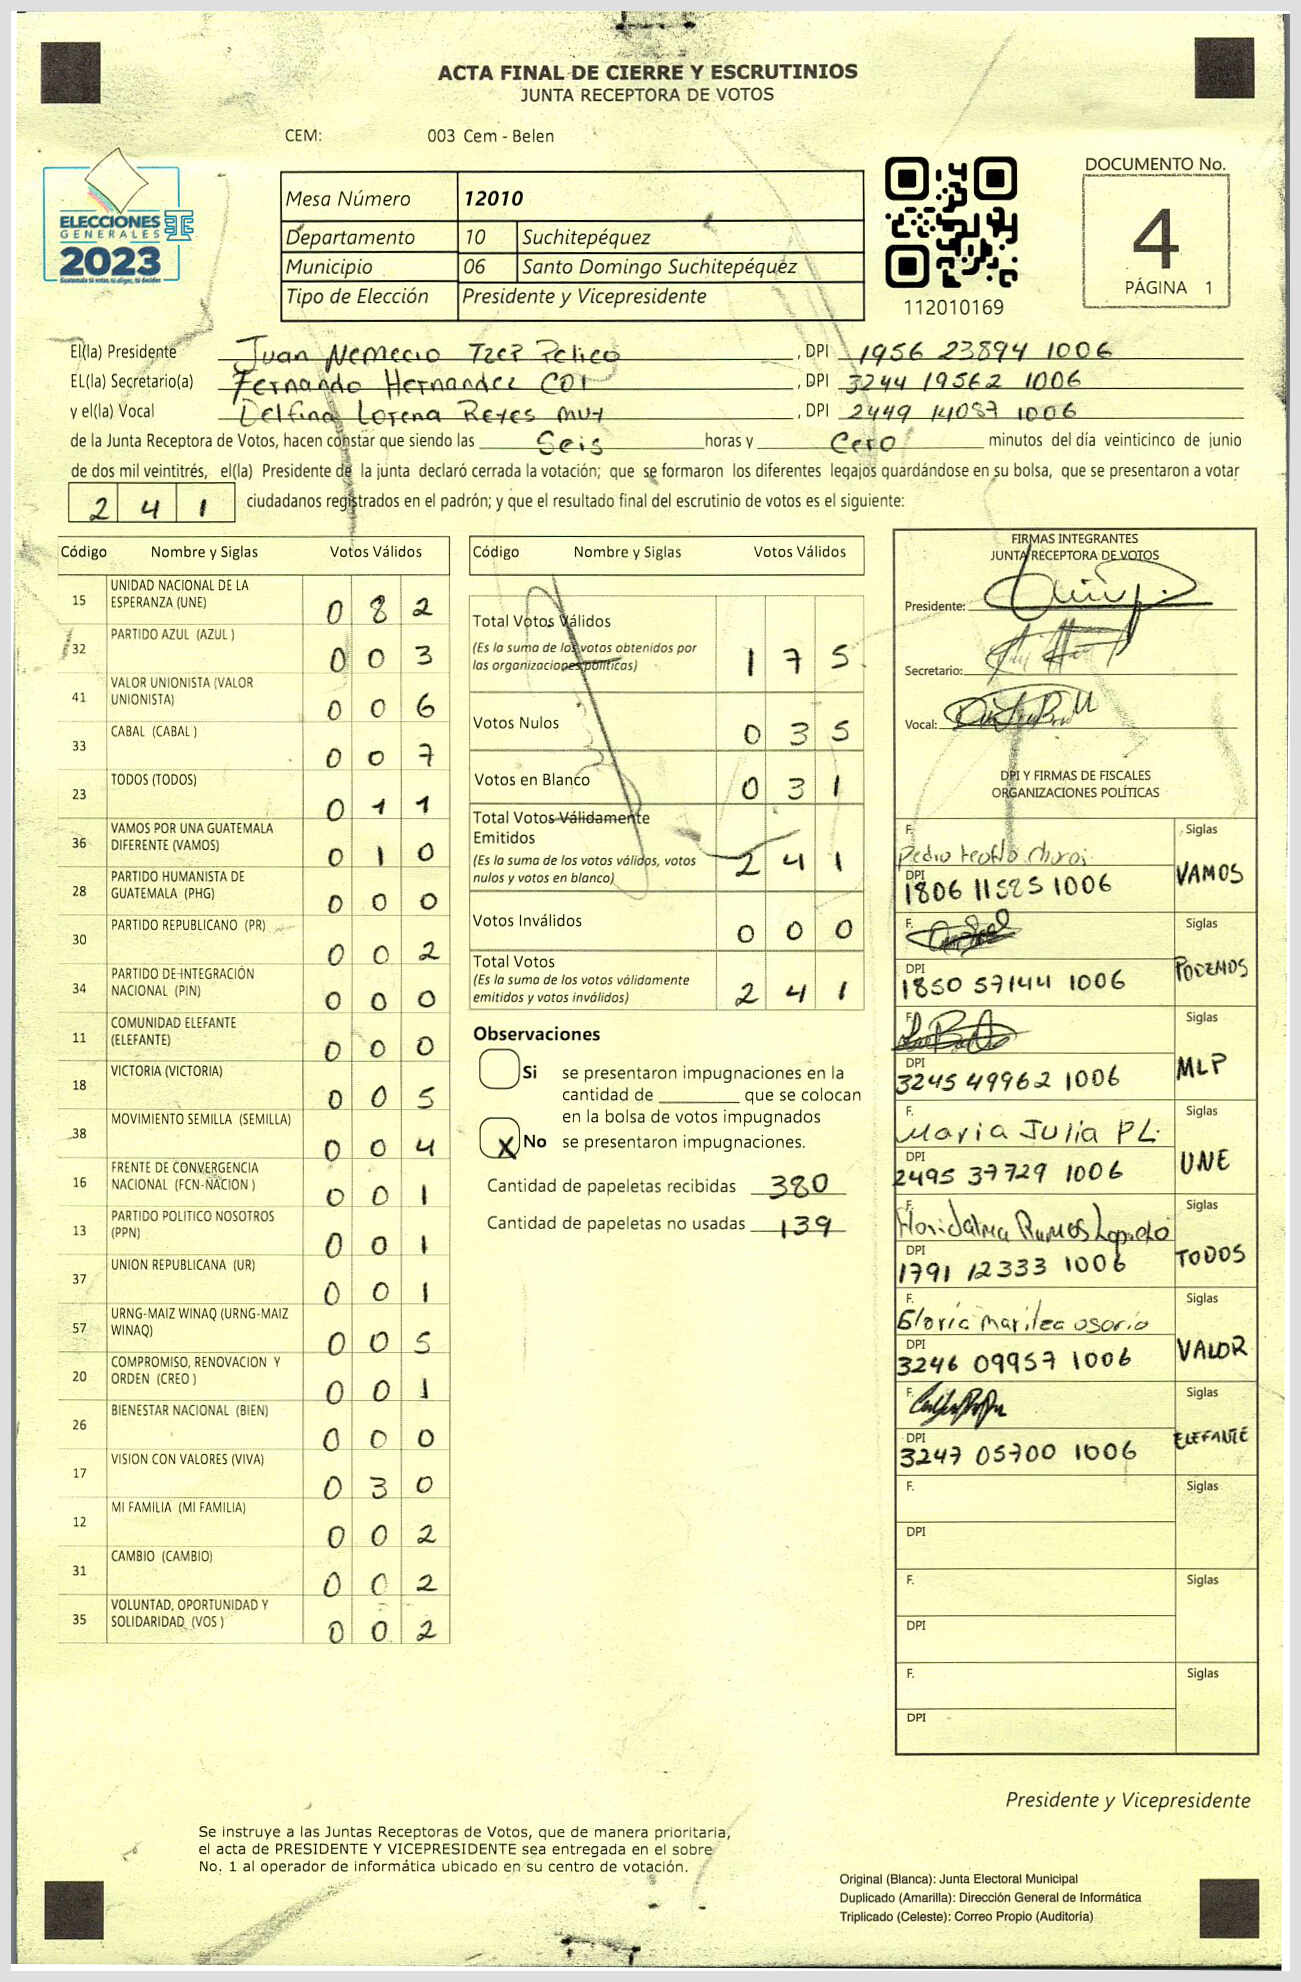 ACTA FINAL DE CIERRE Y ESCRUTINIOS
JUNTA RECEPTORA DE VOTOS
CEM: 003 Cem - Belen
ELECCIONES
GENERALES
2023
Mesa Número 12010
Departamento 10 Suchitepéquez
Municipio 06 Santo Domingo Suchitepéquez
Tipo de Elección Presidente y Vicepresidente
112010169
DOCUMENTO No.
4
PÁGINA 1
El(la) Presidente Juan Nemecio Tzep Pelico, DPI 1956 23894 1006
EL(la) Secretario(a) Fernando Hernandez COI, DPI 3244 19562 1006
y el(la) Vocal Delfina Lorena Reyes muy, DPI 2449 14087 1006
de la Junta Receptora de Votos, hacen constar que siendo las Seis horas y Cero minutos del día veinticinco de junio
de dos mil veintitrés, el(la) Presidente de la junta declaró cerrada la votación; que se formaron los diferentes legajos guardándose en su bolsa, que se presentaron a votar
241 ciudadanos registrados en el padrón; y que el resultado final del escrutinio de votos es el siguiente:
Código Nombre y Siglas Votos Válidos
15 UNIDAD NACIONAL DE LA ESPERANZA (UNE) 082
32 PARTIDO AZUL (AZUL ) 003
41 VALOR UNIONISTA (VALOR UNIONISTA) 006
33 CABAL (CABAL ) 007
23 TODOS (TODOS) 011
36 VAMOS POR UNA GUATEMALA DIFERENTE (VAMOS) 010
28 PARTIDO HUMANISTA DE GUATEMALA (PHG) 000
30 PARTIDO REPUBLICANO (PR) 002
34 PARTIDO DE INTEGRACIÓN NACIONAL (PIN) 000
11 COMUNIDAD ELEFANTE (ELEFANTE) 000
18 VICTORIA (VICTORIA) 005
38 MOVIMIENTO SEMILLA (SEMILLA) 004
16 FRENTE DE CONVERGENCIA NACIONAL (FCN-NACION ) 001
13 PARTIDO POLITICO NOSOTROS (PPN) 001
37 UNION REPUBLICANA (UR) 001
57 URNG-MAIZ WINAQ (URNG-MAIZ WINAQ) 005
20 COMPROMISO, RENOVACION Y ORDEN (CREO ) 001
26 BIENESTAR NACIONAL (BIEN) 000
17 VISION CON VALORES (VIVA) 030
12 MI FAMILIA (MI FAMILIA) 002
31 CAMBIO (CAMBIO) 002
35 VOLUNTAD, OPORTUNIDAD Y SOLIDARIDAD (VOS ) 002
Código Nombre y Siglas Votos Válidos
Total Votos Válidos
(Es la suma de los votos obtenidos por
las organizaciones políticas) 175
Votos Nulos 035
Votos en Blanco 031
Total Votos Válidamente
Emitidos
(Es la suma de los votos válidos, votos
nulos y votos en blanco) 241
Votos Inválidos 000
Total Votos
(Es la suma de los votos válidamente
emitidos y votos inválidos) 241
Observaciones
Si se presentaron impugnaciones en la
cantidad de ________ que se colocan
en la bolsa de votos impugnados
X No se presentaron impugnaciones.
Cantidad de papeletas recibidas 380
Cantidad de papeletas no usadas 139
FIRMAS INTEGRANTES
JUNTA RECEPTORA DE VOTOS
Presidente:
Secretario:
Vocal:
DPI Y FIRMAS DE FISCALES
ORGANIZACIONES POLÍTICAS
F. Pedro Siglas
DPI 1806 11525 1006 VAMOS
F. Siglas
DPI 1850 57144 1006 PODEMOS
F. Siglas
DPI 3245 49962 1006 MLP
F. Maria Julia PL. Siglas
DPI 2495 37729 1006 UNE
F. Floridalma Ramos Siglas
DPI 1791 12333 1006 TODOS
F. Gloria marilea osorio Siglas
DPI 3246 09957 1006 VALOR
F. Siglas
DPI 3247 05700 1006 ELEFANTE
F. Siglas
DPI
F. Siglas
DPI
F. Siglas
DPI
Presidente y Vicepresidente
Se instruye a las Juntas Receptoras de Votos, que de manera prioritaria,
el acta de PRESIDENTE Y VICEPRESIDENTE sea entregada en el sobre
No. 1 al operador de informática ubicado en su centro de votación.
Original (Blanca): Junta Electoral Municipal
Duplicado (Amarilla): Dirección General de Informática
Triplicado (Celeste): Correo Propio (Auditoría)